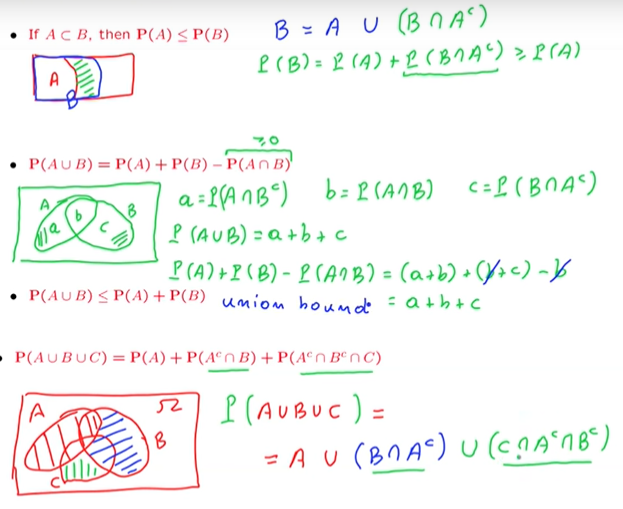 • If A ⊂ B, then P(A) ≤ P(B)
B = A ∪ (B ∩ Aᶜ)
P(B) = P(A) + P(B∩Aᶜ) ≥ P(A)
A
B
≥0
• P(A ∪ B) = P(A) + P(B) − P(A ∩ B)
A
B
a
b
c
a = P(A∩Bᶜ) b = P(A∩B) c = P(B∩Aᶜ)
P(A∪B) = a + b + c
P(A)+P(B) − P(A∩B) = (a+b) + (b+c) − b
• P(A ∪ B) ≤ P(A) + P(B) union bound = a + b + c
• P(A ∪ B ∪ C) = P(A) + P(Aᶜ ∩ B) + P(Aᶜ ∩ Bᶜ ∩ C)
A
Ω
B
C
P(A∪B∪C) =
= A ∪ (B∩Aᶜ) ∪ (C∩Aᶜ∩Bᶜ)